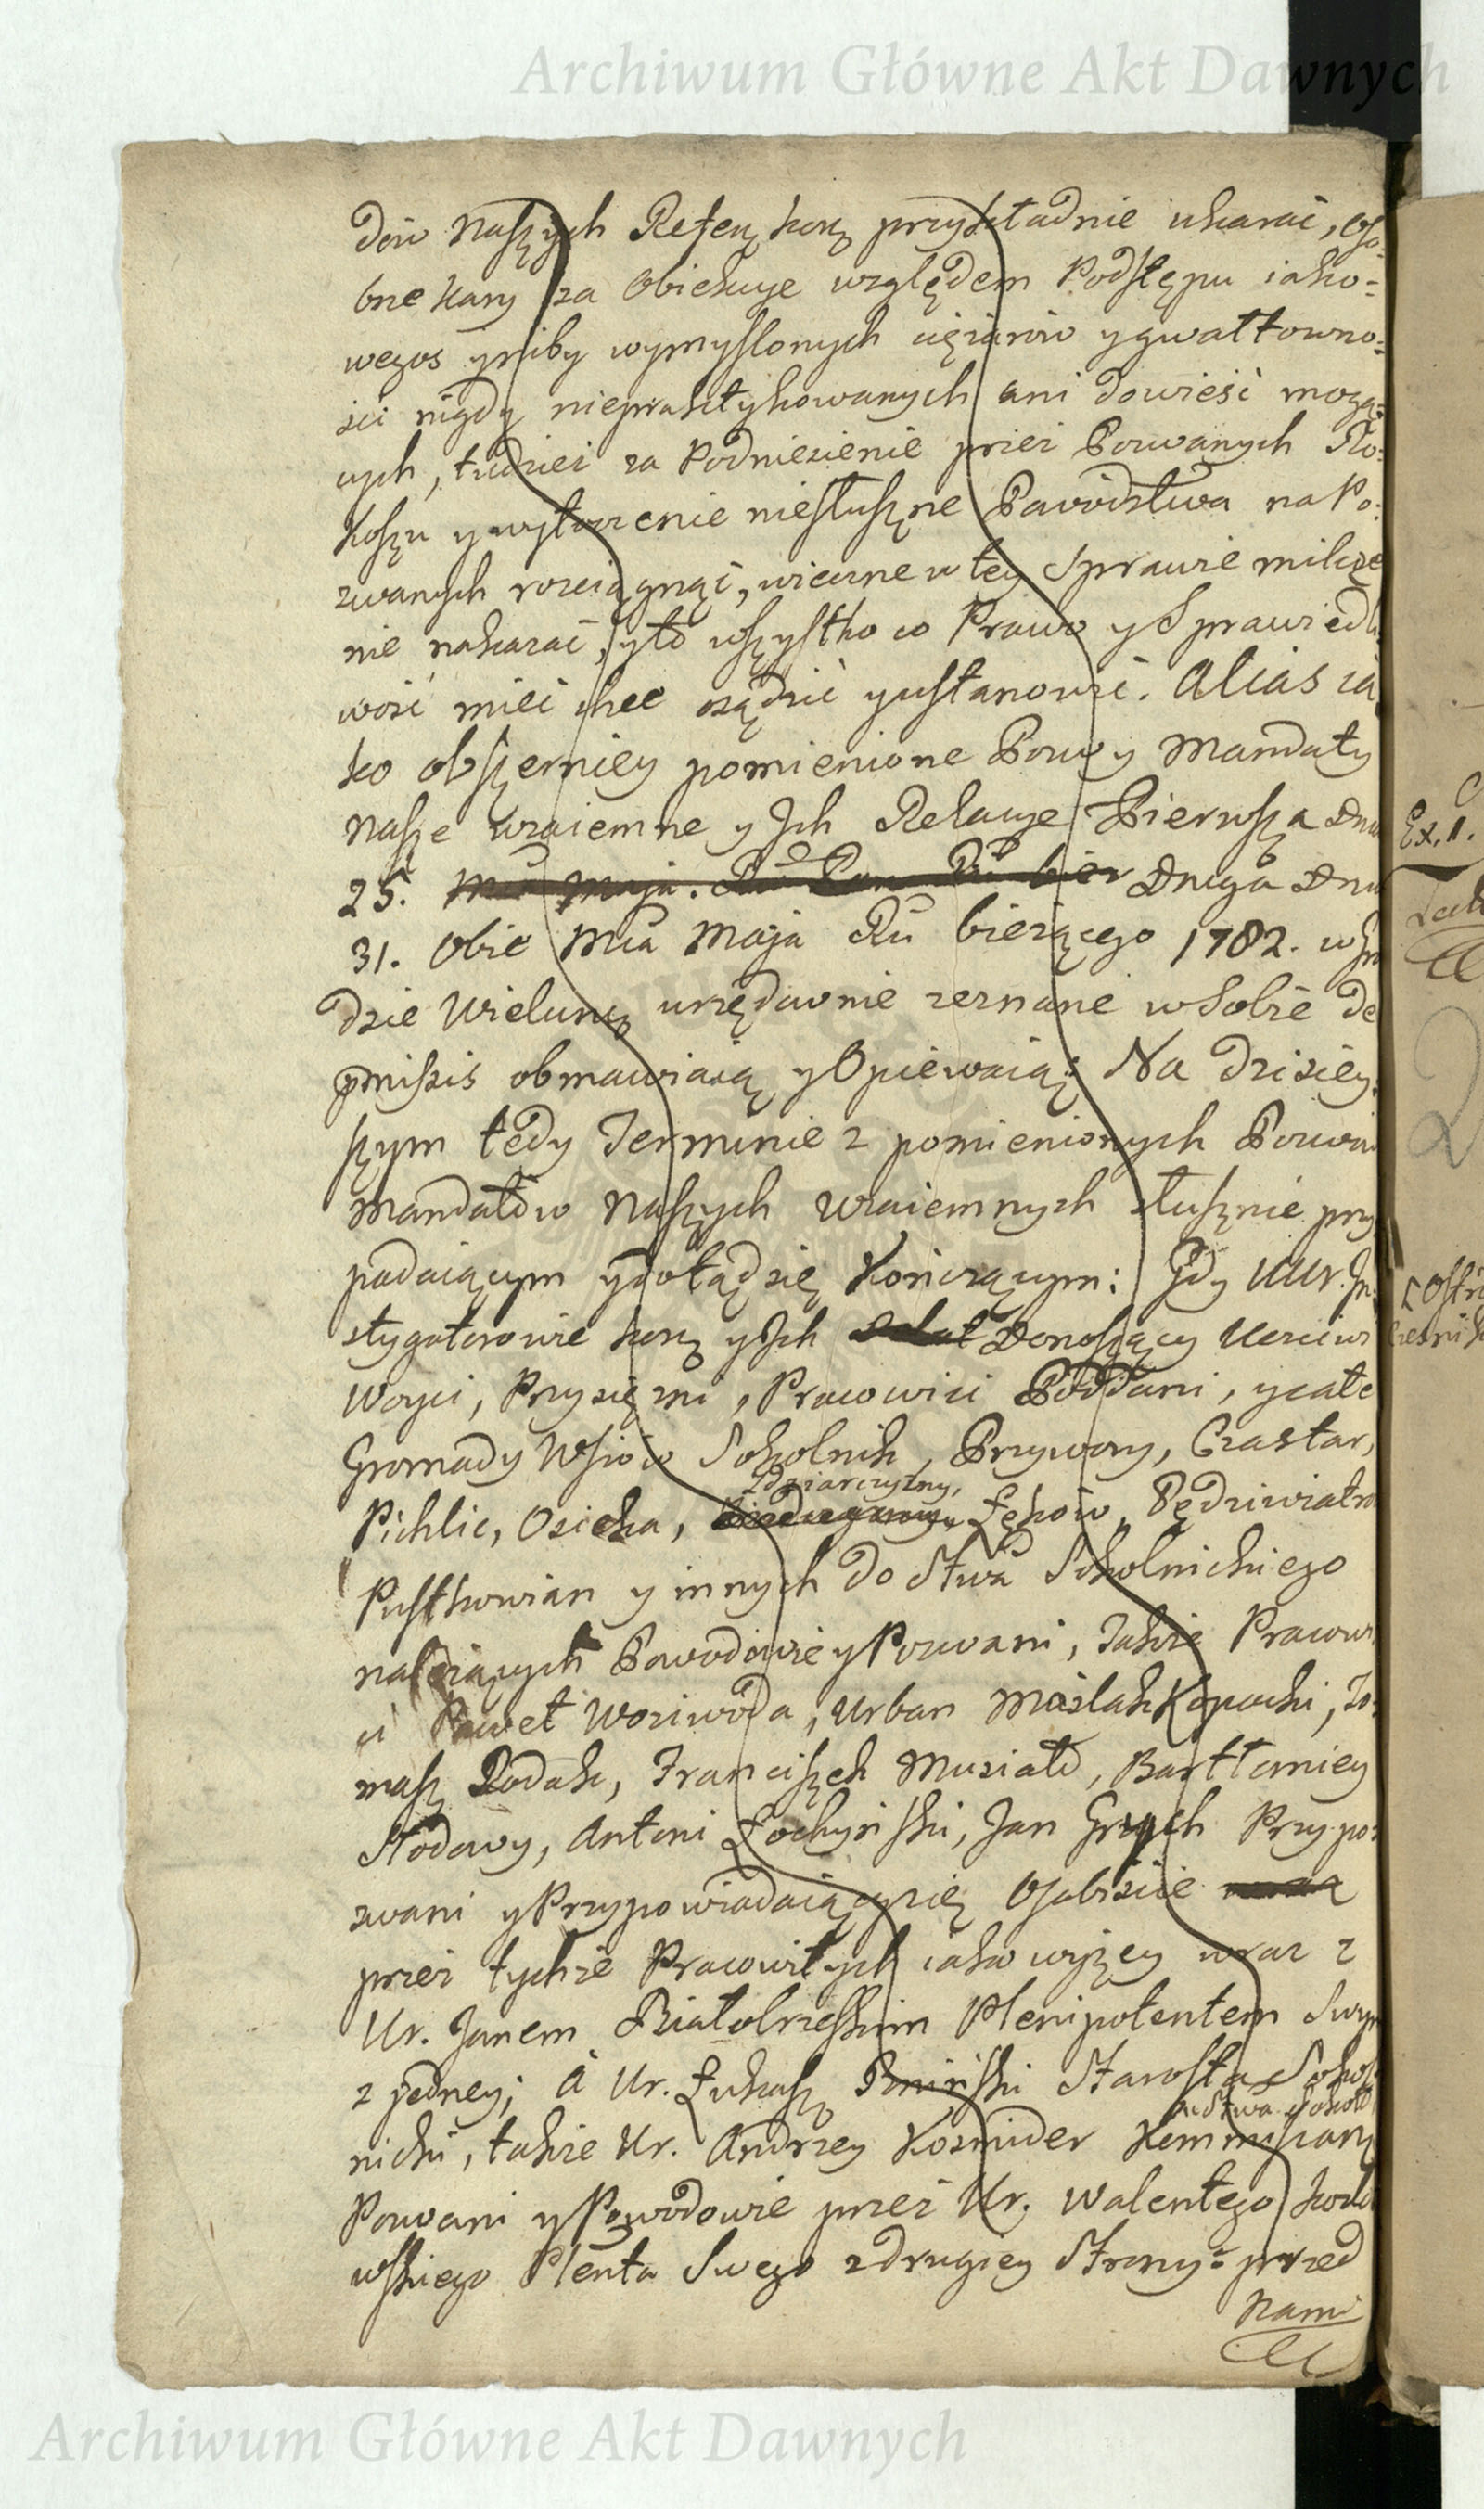 Archiwum Główne Akt Dawnych
dów Naszych Referꝫ korꝫ przykładnie ukarać, Oso-
bne kary za Obiekcye względem Podstępu iako-
wegos y niby wymyslonych ciężarów y gwałtowno-
ści nigdy niepraktykowanych ani dowieść mogą-
cych, tudzież za Podniesienie przez Pozwanych Ro-
koszu y wytoczenie niesłuszne Powództwa na Po-
zwanych rozciągnąć, wieczne w tey Sprawie milcze
nie nakazać, y to wszystko co Prawo y Sprawiedli
wość mieć chce osądzić y ustanowić. Alias ia
ko obszerniey pomienione Pozwy Mandaty
Nasze wzaiemne y Ich Relacye Pierwsza Dnia
25. Druga Dnia
31. Obie Mca Maja Ru bieżącego 1782. w Gro
dzie Wieluńꝫ urzędownie zeznane w Sobie de
pmissis obmawiaią y Opiewaią; Na dzisiey-
szym tedy Terminie z pomienionych Pozwów
Mandatów Naszych wzaiemnych słusznie przy
padaiącym y dotąd się Kończącym: Gdy UUr. In-
stygatorowie korꝫ y Ich Donoszący Uczciwi
Woyci, Przysięźni, Pracowici Poddani, y całe
Gromady Wsiów Sokolnik, Przywory, Czastar,
Zdziarczyzny,
Pichlic, Osieka, Łęków, Pędziwiatrow
Pustkowian y innych do Stwa Sokolnickiego
należących Powodowie y Pozwani, Także Pracowi
ci Paweł Woziwoda, Urban Maślak Kopacki, To-
masz Rodak, Franciszek Musiało, Bartłomiey
Słodowy, Antoni Łochyński, Jan Grych Przypo-
zwani y Przypowiadaiący się Osobiście
przez tychże Pracowitych iako wyżey wraz z
Ur. Janem Białobrzeskim Plenipotentem Swym
z jedney; A Ur. Łukasz Bniński Starosta Sokol
Stwa Sokol
nicki, także Ur. Andrzey Kozmider Kommissarz
Pozwani y Powodowie przez Ur. Walentego
wskiego Plenta Swego z drugiey Strony: przed
Nami
Ex. 11.
Archiwum Główne Akt Dawnych